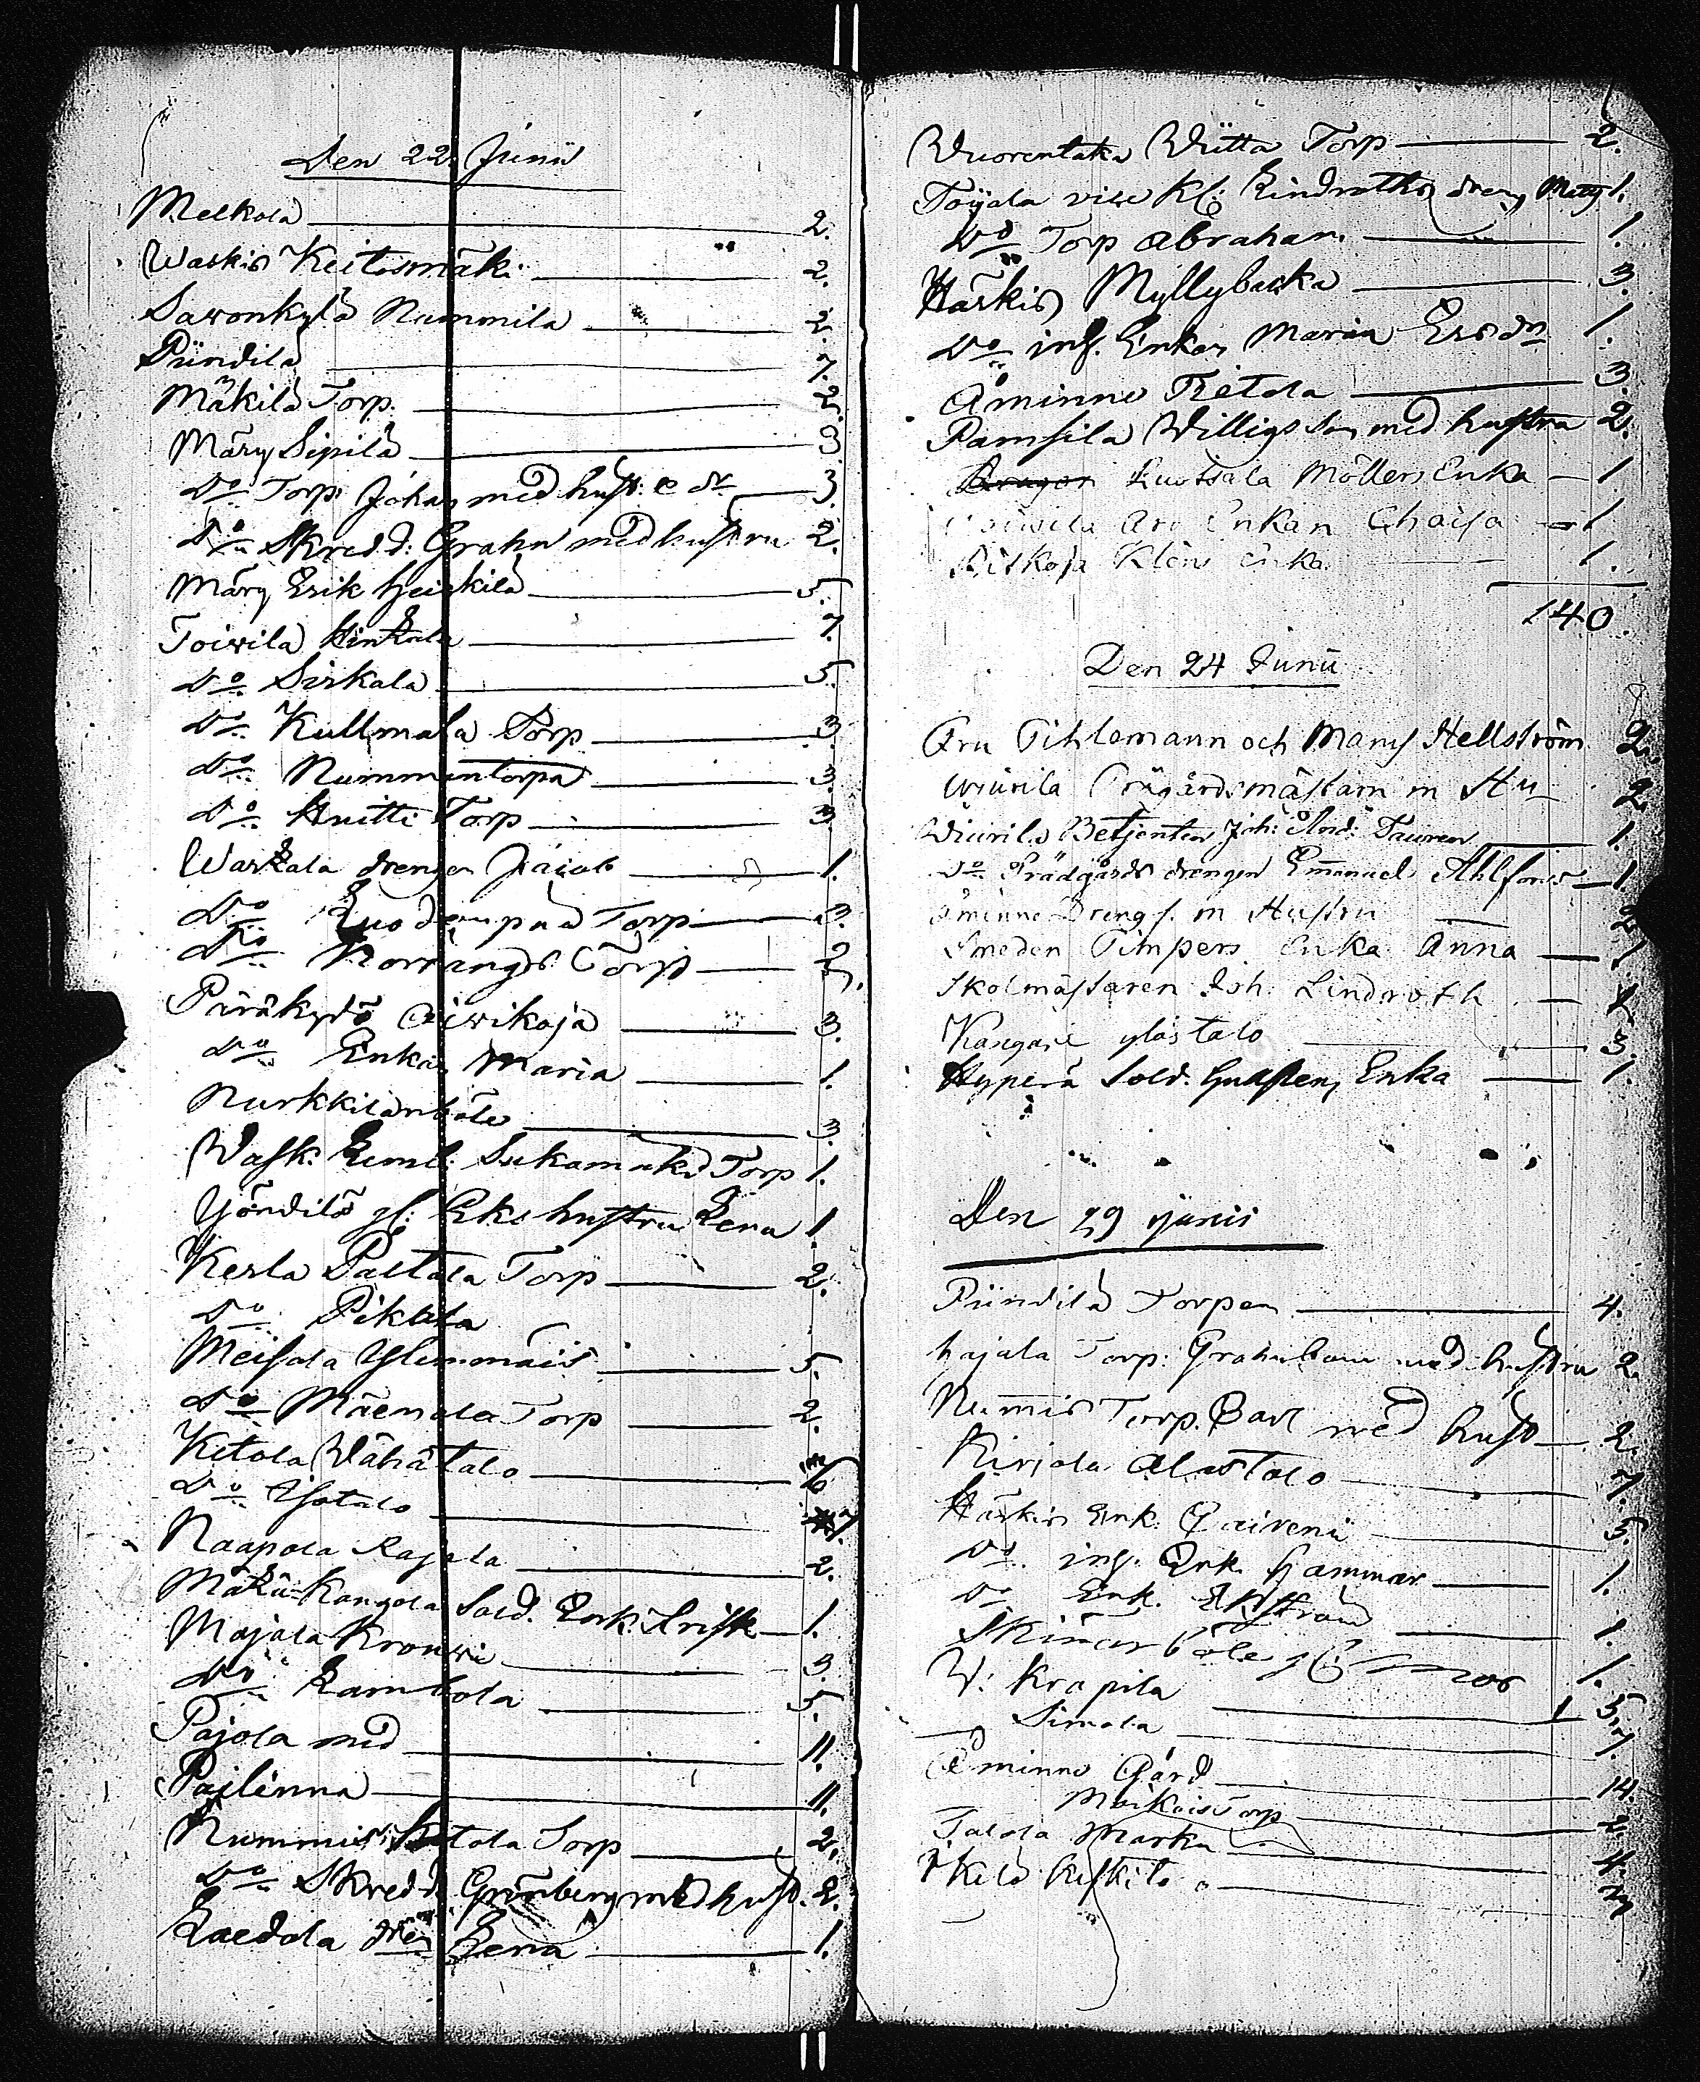 Den 22 Junii
Melkola 2.
Waskio Keitosmäki 2.
Sawonkylä Nummila 2.
Pundila 7.
Mäkilä Torp. 2.
Märy Sipilä 3
Do Torp: Johan med hust: e dr 3.
Do Skredd: Grahn med hustru 2.
Märy Erik Heickilä 5.
Toiwila Hinkala 7.
Do Sirkala 5.
Do Kullmala Torp 3.
Do Nummentorpa 3.
Do Knitti Torp 3.
Warkala drengen Jacob 1.
Do Torp 3.
Do Norrängs Torp
Päräkylä Oiwikoja 3.
Do Enkan Maria 1.
Nurkkilanböle 3.
Wask. Torp 1.
Yöndilä hustru Lena 1.
Kerla Paltala Torp 2.
Do Pikkala
Meisala Ylimmäis 5.
Do Mäenala Torp 2.
Ketola Wähätalo
Do Isotalo
Naapala Rajala 2.
Mäkii Kangola Sold. Enk. Frisk 1.
Majala Krouwi 3.
Do Lambola 5.
Pajola med 11.
Pajlinna 11.
Nummis Torp 2.
Do Skredd. Grönberg med hust. 2.
Laedola Lena 1.
Wuorentaka Wiitta Torp 2.
Töijala vice Kl: Lindroths dreng Matts 1.
Do Torp Abraham 1.
Härkis Myllybacka 3.
Do inh. Enkan Maria Ersdr 1.
Åminne Tietola 3.
Pamsila Willigsson med hustru 2.
Ruotsala Möllers Enka 1
Enkan Chaisa 1
Klens Enka 1.
140
Den 24 Junii
Fru Pihlemann och Mams Hellström 2.
Wiurila m Hu 2
Wiurila Betjenten Joh: And: Tauren 1.
Do Trädgårds drengen Emanuel Ahlfors 1
Åminne Drengs. m Hustru 2
Smeden Timpers Enka Anna 1
Skolmästaren Joh. Lindroth 1
Kangare ylöstalo 3.
Hyperä Sold. Gulsten Enka 1.
Den 29 junii
Pündilä Torpen 4.
hajala Torp: Grahnbom med hustru 2.
Nummis Torp. Carl med hust 2.
Kirjola Alastalo 7.
Härkis Enk. 5.
Do inh. Enk. Hammar 1.
Do Enk. Ekström 1.
Skinarböle 1.
W: Krapila 5.
Simola 7.
Åminne Gård 14.
Maikois Torp 2.
Talola Marku 4.